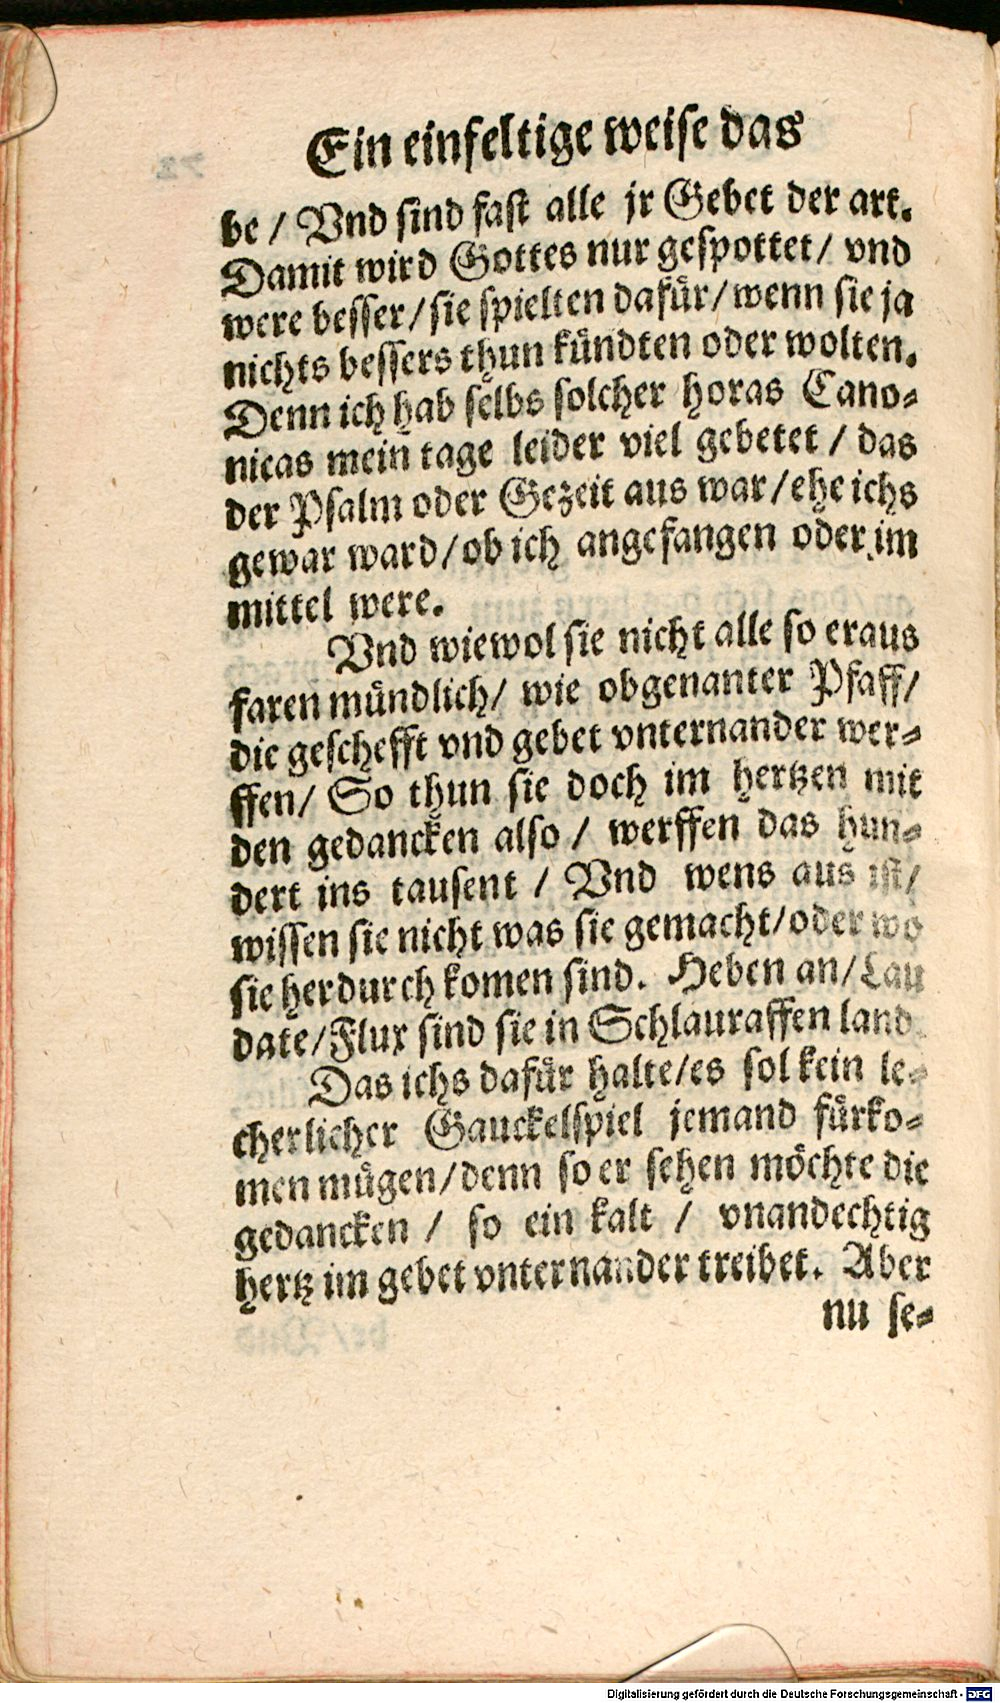 Ein einfeltige weise das
be / Vnd sind fast alle jr Gebet der art.
Damit wird Gottes nur gespottet / vnd
were besser / sie spielten dafür / wenn sie ja
nichts bessers thun kündten oder wolten.
Denn ich hab selbs solcher horas Cano-
nicas mein tage leider viel gebetet / das
der Psalm oder Gezeit aus war / ehe ichs
gewar ward / ob ich angefangen oder im
mittel were.
Vnd wiewol sie nicht alle so eraus
faren mündlich / wie obgenanter Pfaff /
die geschefft vnd gebet vnternander wer-
ffen / So thun sie doch im hertzen mit
den gedancken also / werffen das hun-
dert ins tausent / Vnd wens aus ist /
wissen sie nicht was sie gemacht / oder wo
sie herdurch komen sind. Heben an / Lau
date / Flux sind sie in Schlauraffen land.
Das ichs dafür halte / es sol kein le-
cherlicher Gauckelspiel jemand fürko-
men mügen / denn so er sehen möchte die
gedancken / so ein kalt / vnandechtig
hertz im gebet vnternander treibet. Aber
nu se-
Digitalisierung gefördert durch die Deutsche Forschungsgemeinschaft - DFG